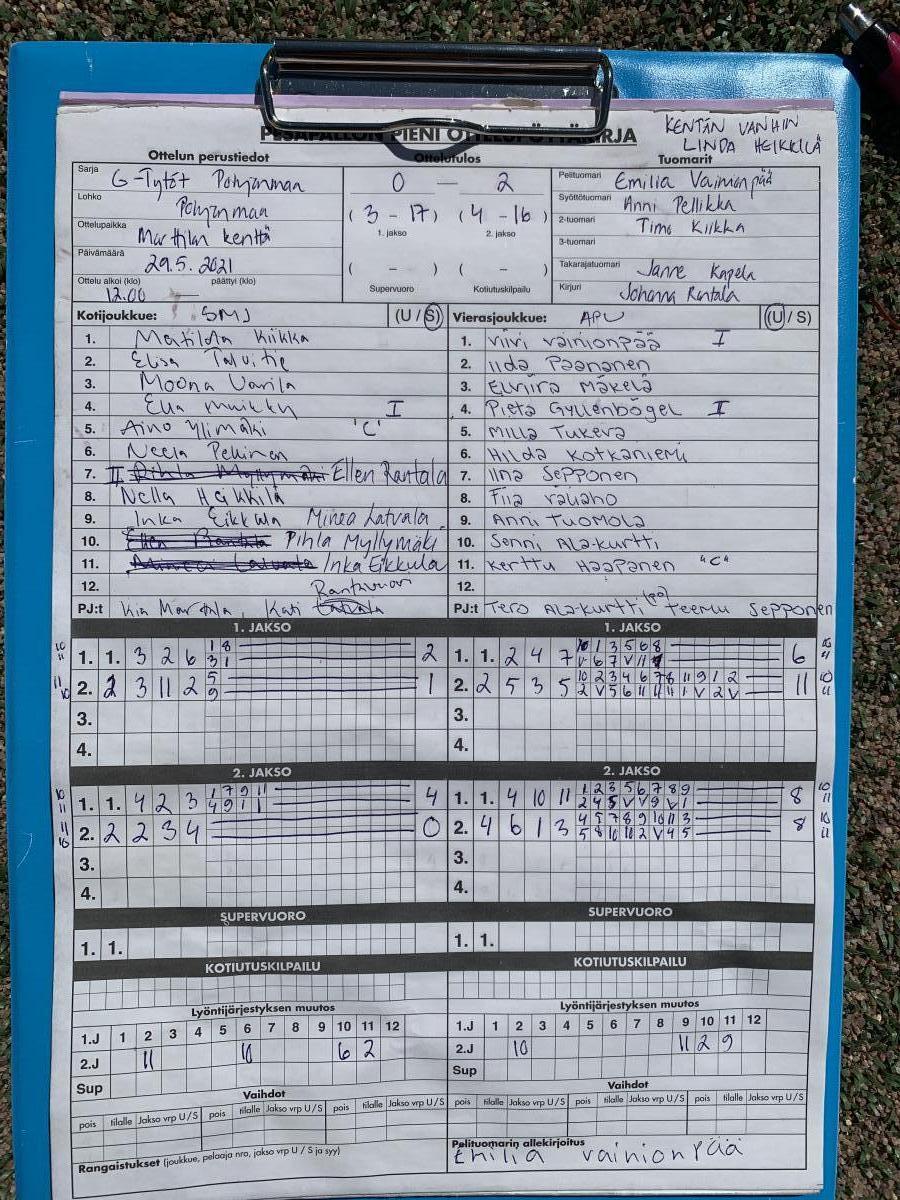 PESÄPALLON PIENI OTTELUPÖYTÄKIRJA
KENTÄN VANHIN
LINDA HEIKKILÄ
Ottelun perustiedot
Sarja G-Tytöt Pohjanmaa
Lohko Pohjanmaa
Ottelupaikka Marttilan kenttä
Päivämäärä 29.5.2021
Ottelu alkoi (klo) päättyi (klo)
12.00 —
Ottelutulos
0 — 2
(3 - 17) (4 - 16)
1. jakso 2. jakso
( - ) ( - )
Supervuoro Kotiutuskilpailu
Tuomarit
Pelituomari Emilia Vainionpää
Syöttötuomari Anni Pellikka
2-tuomari Timo Kiikka
3-tuomari
Takarajatuomari Janne Kapela
Kirjuri Johanna Rantala
Kotijoukkue: SMJ (U / S)
1. Matilda Kiikka
2. Elisa Talvitie
3. Moona Varila
4. Ella Muikku I
5. Aino Ylimäki "C"
6. Neela Pekinen
7. II Pihla Myllymäki Ellen Rantala
8. Nella Heikkilä
9. Inka Eikkula Minea Latvala
10. Ellen Rantala Pihla Myllymäki
11. Minea Latvala Inka Eikkula
12.
PJ:t Kia Marttila, Kati Latvala Rantavuori
Vierasjoukkue: APU (U / S)
1. Viivi Vainionpää I
2. Iida Paananen
3. Elviira Mäkelä
4. Pieta Gyllenbögel I
5. Milla Tukeva
6. Hilda Kotkaniemi
7. Iina Sepponen
8. Fiia Väliaho
9. Anni Tuomola
10. Senni Ala-Kurtti
11. Kerttu Haapanen "C"
12.
PJ:t Tero Ala-Kurtti (pp) Teemu Sepponen
1. JAKSO
10
11 1. 1. 3 2 6 1 8
3 1 2
11
10 2. 2 3 11 2 5
9 1
3.
4.
1. JAKSO
1. 1. 2 4 7 10 1 3 5 6 8 6 10
11
2. 2 5 3 5 10 2 3 4 6 7 8 11 9 1 2
2 V 5 6 11 11 11 1 V 2 V 11 10
11
3.
4.
2. JAKSO
10
11 1. 1. 4 2 3 1 7 9 11
4 9 1 1 4
11
10 2. 2 2 3 4 0
3.
4.
2. JAKSO
1. 1. 4 10 11 1 2 3 5 6 7 8 9
2 4 5 V V 9 V 1 8 10
11
2. 4 6 1 3 4 5 7 8 9 10 11 3
5 8 10 10 2 V 4 5 8 10
11
3.
4.
SUPERVUORO
1. 1.
SUPERVUORO
1. 1.
KOTIUTUSKILPAILU
KOTIUTUSKILPAILU
Lyöntijärjestyksen muutos
1.J 1 2 3 4 5 6 7 8 9 10 11 12
2.J 11 10 6 2
Sup
Lyöntijärjestyksen muutos
1.J 1 2 3 4 5 6 7 8 9 10 11 12
2.J 10 11 2 9
Sup
Vaihdot
pois tilalle Jakso vrp U / S pois tilalle Jakso vrp U / S pois tilalle Jakso vrp U / S
Vaihdot
pois tilalle Jakso vrp U / S pois tilalle Jakso vrp U / S pois tilalle Jakso vrp U / S
Rangaistukset (joukkue, pelaaja nro, jakso vrp U / S ja syy)
Pelituomarin allekirjoitus
Emilia Vainionpää